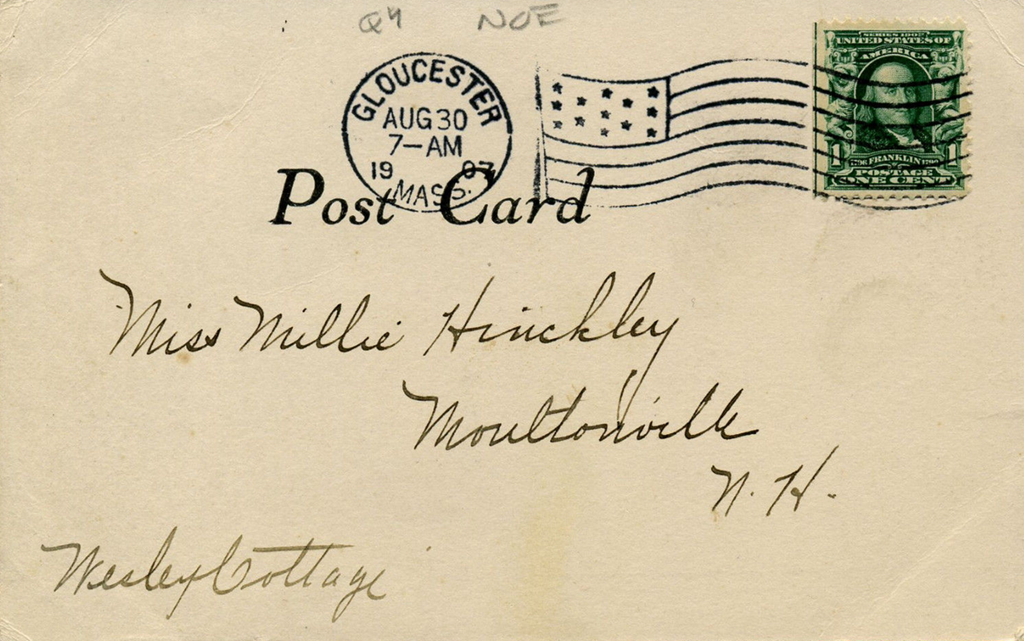 Q4 NOE
GLOUCESTER
AUG 30
7-AM
1907
MASS.
SERIES 1902
UNITED STATES OF
AMERICA
1 FRANKLIN 1
POSTAGE
ONE CENT
Post Card
Miss Millie Hinckley
Moultonville
N. H.
Wesley Cottage